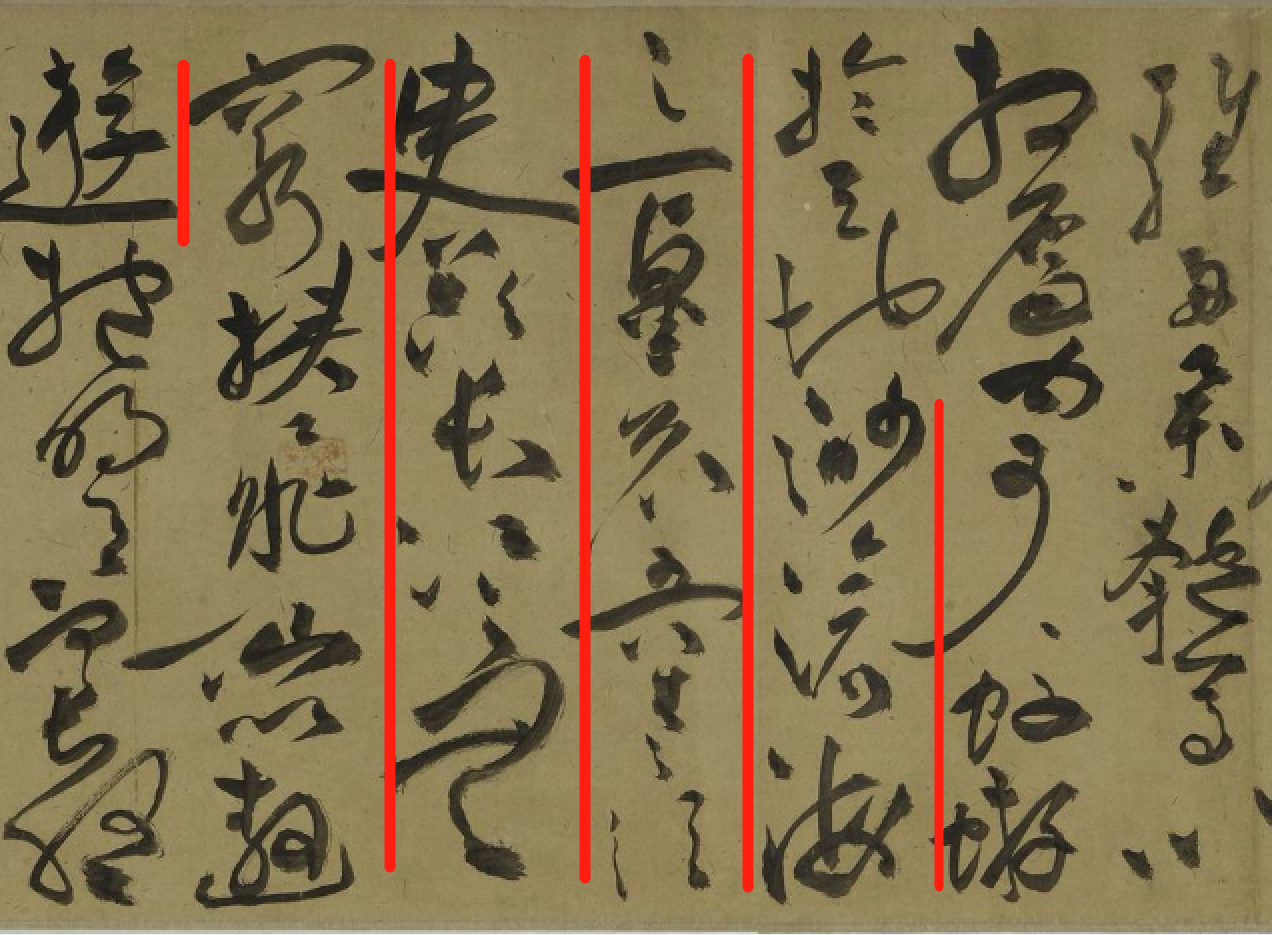 舟舉匏尊以
相屬寄蜉蝣
於天地渺滄海
之一粟哀吾生之須
臾羨長江之無
窮挾飛仙以遨
遊抱明月而長終